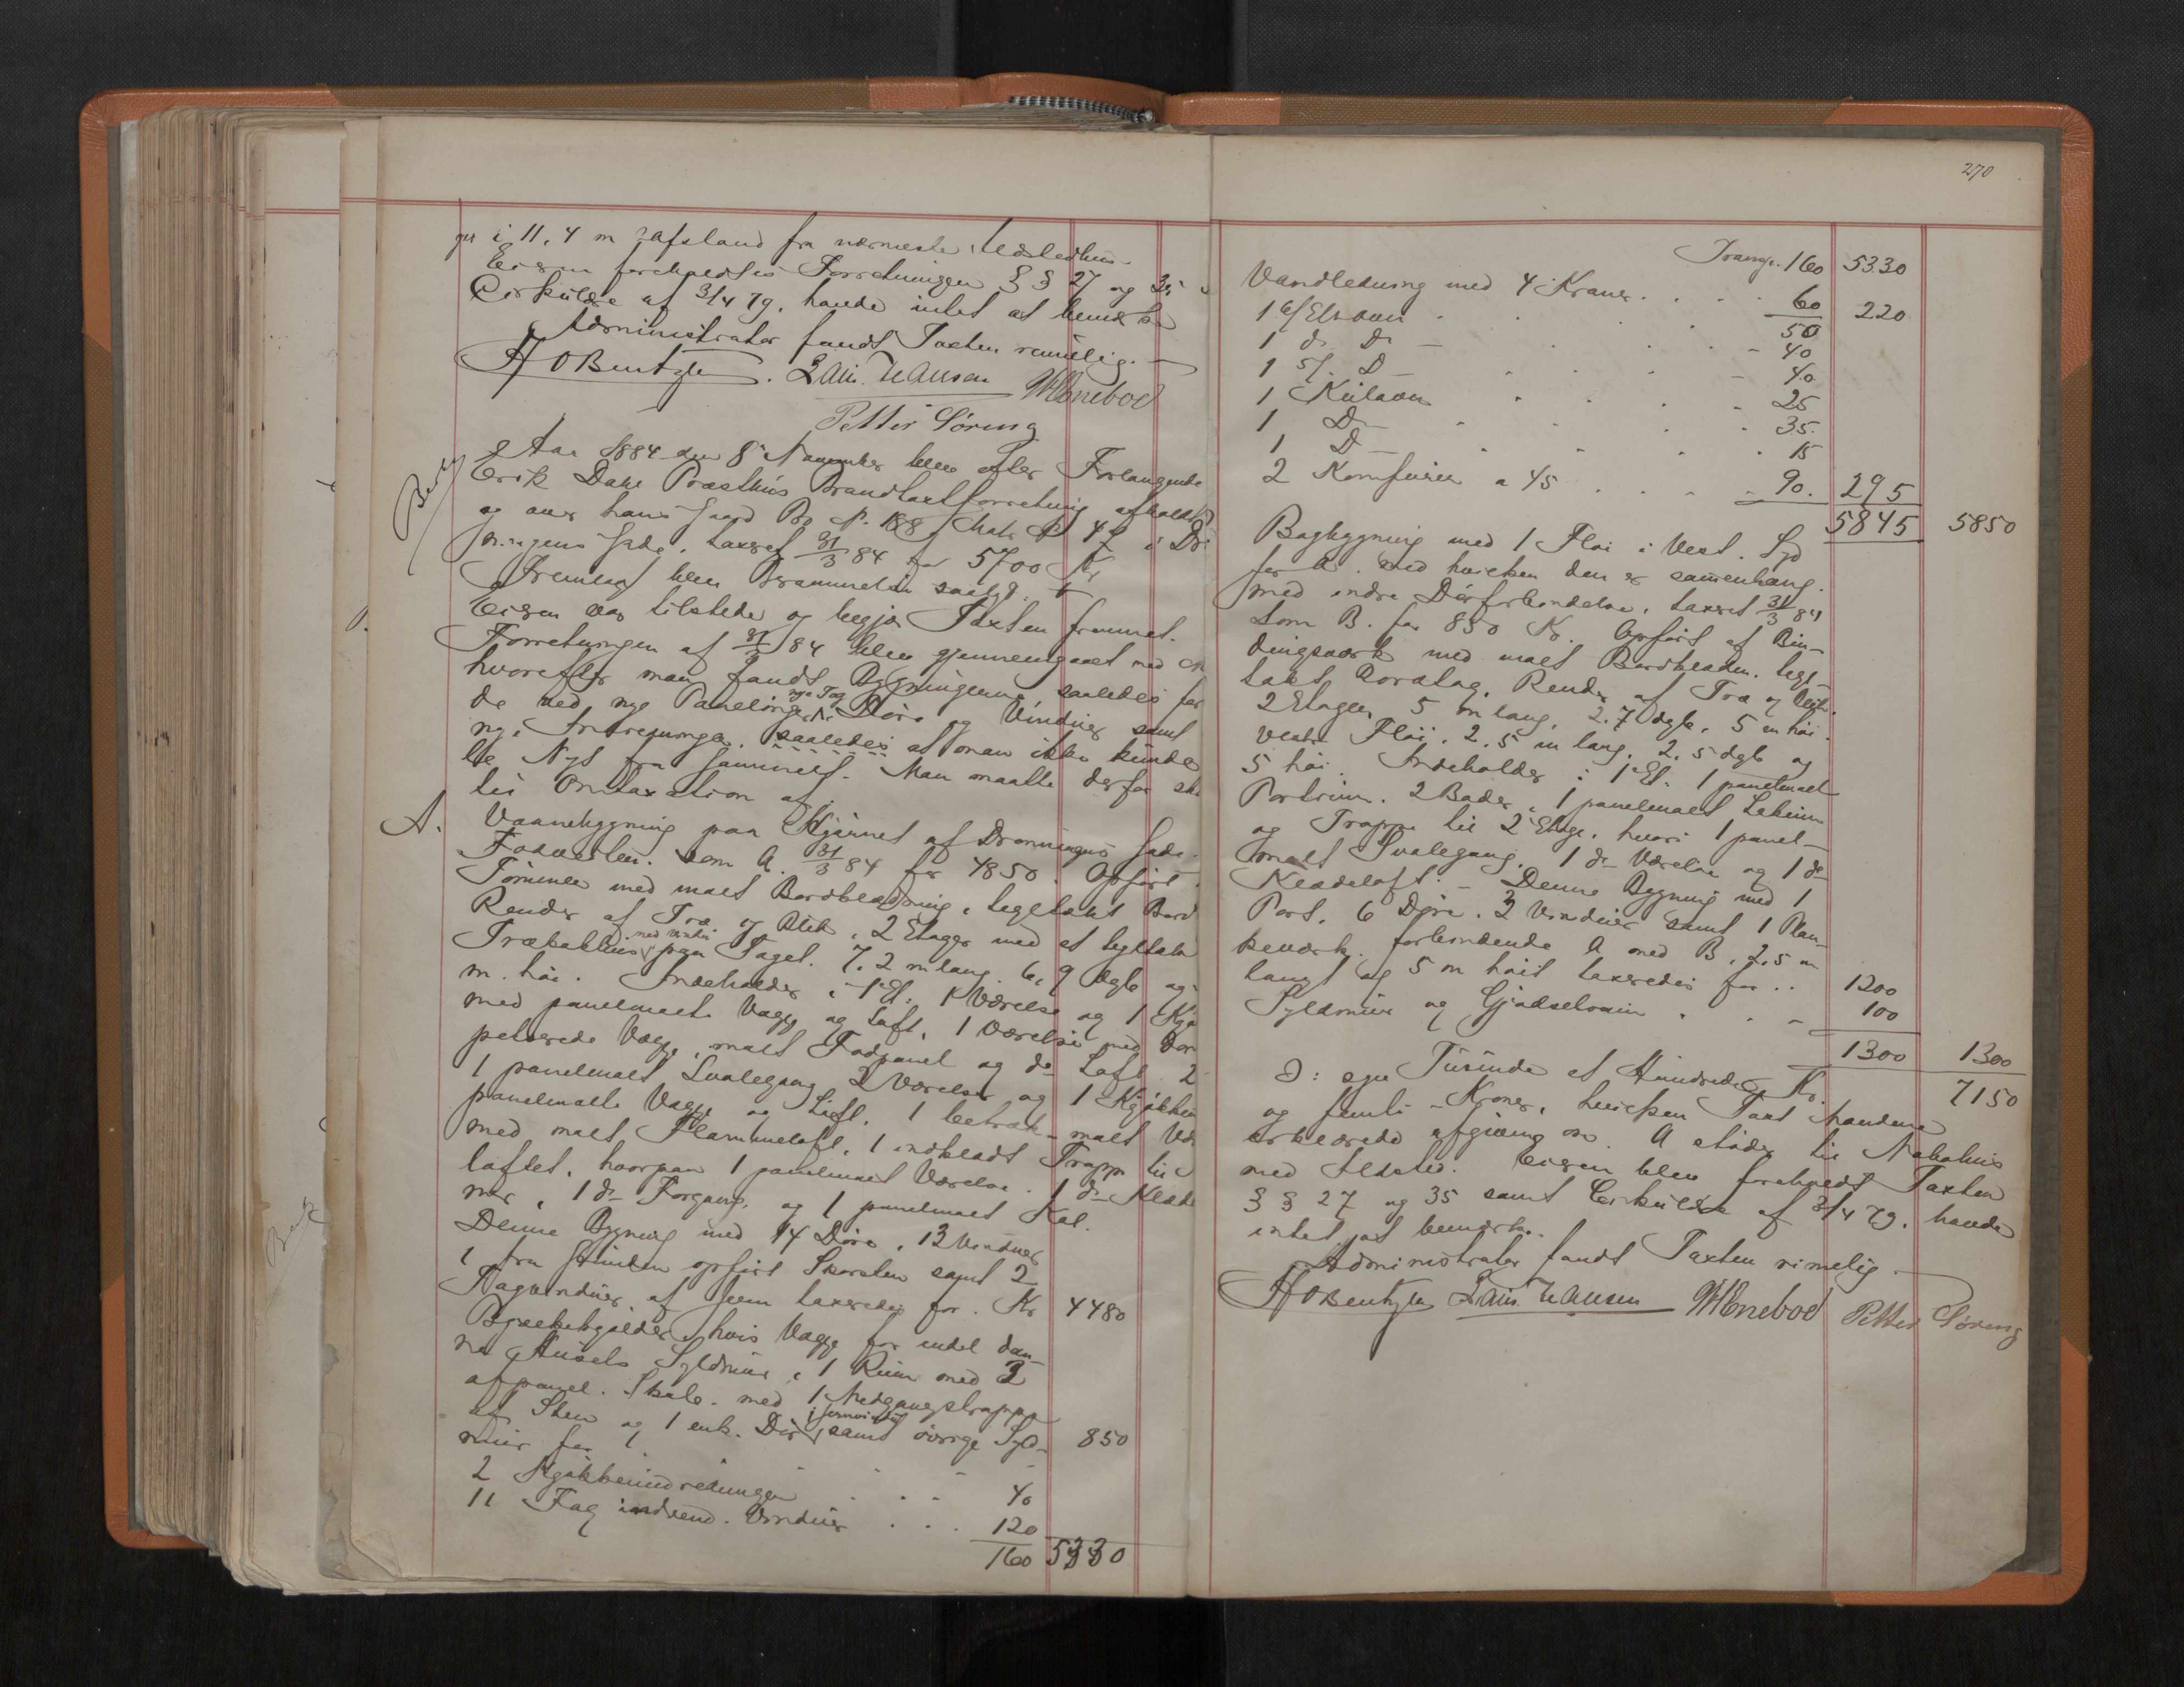 i 11,4 m Afstand fra nærmeste Ildstedhus.
Eieren foreholdtes Forretningen § § 27 og 35
Cirkulære af 3/4 79, havde intet at bemærke
Administrator fandt Taxten rimelig. —
H O Bentzen. Laur. Hansen
Petter Søreng
Aar 1884 den 8de November blev efter Forlangende
Erik Dahl Præsthus Brandtaxtforretning afholdt
og over hans Gaard No 188 Matr. N 42 i Dro
ningens Gade, taxeret 31/3 84 for 5700 Kr
Fremlagt blev
Eieren var tilstede og begjær Taxten fremmet.
Forretningen af 31/3 84 blev gjennemgaaet med
hvorefter man fandt Bygningerne saaledes for
de ved nye Paneling, nye Tag, Døre og Vinduer samt
ny Indretninger, saaledes at man ikke kunde
le Nyt fra Gammelt. Man maatte derfor
til Omtaxation af
A. Vaanebygning paa Hjørnet af Dronningens Gade
som A. 31/3 84 for 4850. Opført
Tømmer med malt Bordklædning, teglhakt Bord
Render af Træ og Blik, 2 Etager med et teglhakt
Træhakhus med Vindu paa Taget. 7,2 m lang, 6,9 dyb og
m. høi. Indeholder i 1 Et. 1 Værelse og 1 Kjø
med panelmalte Vægge og Loft, 1 Værelse med
petserede Vægge, malt Fodpanel og do Loft. 2
1 panelmalt Svalegang 2 Værelser og 1 Kjøkken
panelmalte Vægge og Loft, 1 betræk-malt Væ
med malt Himmeloft, 1 indklædt Trappe til
loftet, hvorpaa 1 panelmalt Værelse. 1 do Klæde
1 do Forgang, og 1 panelmalt
Denne Bygning med 14 Døre, 13 Vinduer
1 fra Grunden opført Skorsten samt 2
Tagvinduer af Jern taxeredes for. Kr 4480
hvis Vægge for endel dan
ne Husets Syldmur, 1 Rum med 3
afpanel. Skab. med 1 Nedgangstrappe
af Sten og 1 enk. Dør samt øvrige Syld-
mur for 850
2 Kjøkkenindredninger . . . 40
11 Fag indvend. Vinduer . . . 120
160 5330
270
Transp. 160 5330
Vandledning med 4 Kraner . . . 60 220
1 6/Et Ovn . . . 50
1 do Do — . . . 40
1 5/. D — . . . 40
1 Kulovn . . . 25
1 Do — . . . 35.
1 D — . . . 15
2 Komfurer a 45 . . . 90. 295
5845 5850
Bagbygning med 1 Fløi i Vest. Syd
for A. med hvilken den er sammenhæng.
med indre Dørforbindelse, taxeret 31/3 84
som B. for 850 Kr. Opført af Bin-
dingsværk med malt Bordklædn. tegl-
takt Bordtag, Render af Træ og Blik.
2 Etager, 5 m lang, 2.7 dyb, 5 m høi.
Vestre Fløi. 2.5 m lang, 2.5 dyb og
5 høi. Indeholder i 1 Et. 1 panelmalt
Portrum. 2 Boder, 1 panelmalt
og Trappe til 2 Etage, hvori 1 panel-
malt Svalegang, 1 do Værelse og 1 do
Klædeloft. — Denne Bygning med 1
Port, 6 Døre, 3 Vinduer samt 1 Plan-
keværk. forbindende A med B, 2,5 m
langt og 5 m høit taxeredes for . . 1200
Syldmur og Gjødselrum . . . 100
1300 1300
7150
ɔ: syv Tusinde et Hundrede Kr.
og femti — Kroner, hvilken Taxt Mændene
erklærede afgivne om. A støder til Nabohus
med Ildsted. Eieren blev foreholdt Taxten
§ § 27 og 35 samt Cirkulære af 3/4 79, havde
intet at bemærke.
Administrator fandt Taxten rimelig —
H O Bentzen Laur. Hansen Petter Søreng